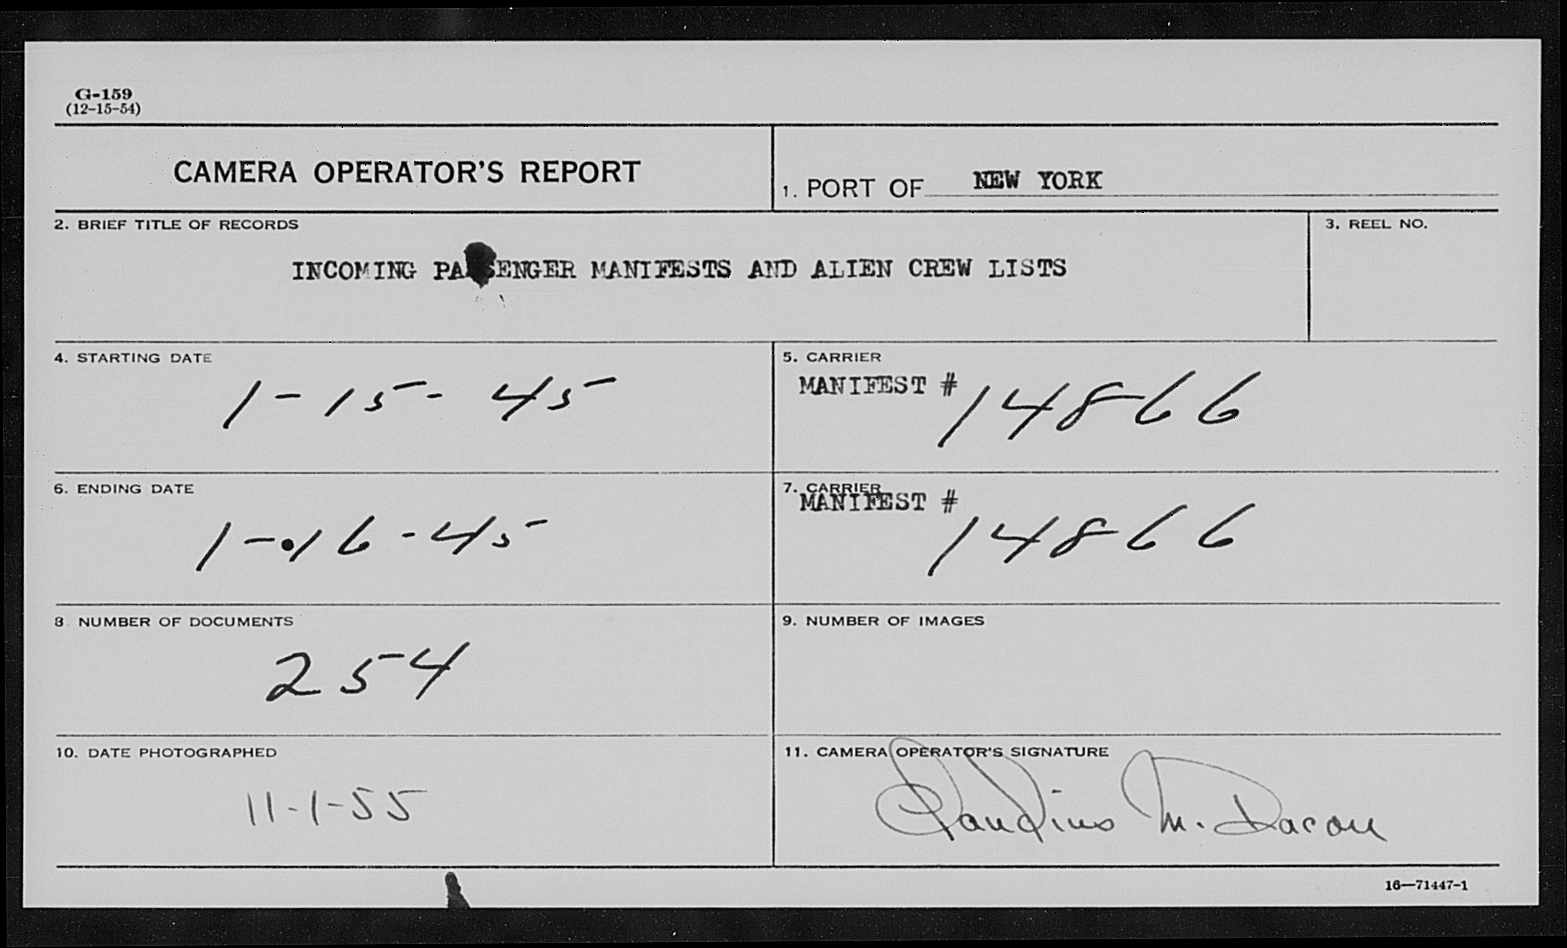 G-159
(12-15-54)
CAMERA OPERATOR'S REPORT
1. PORT OF NEW YORK
2. BRIEF TITLE OF RECORDS
3. REEL NO.
INCOMING PASSENGER MANIFESTS AND ALIEN CREW LISTS
4. STARTING DATE
1-15-45
5. CARRIER
MANIFEST # 14866
6. ENDING DATE
1-16-45
7. CARRIER
MANIFEST # 14866
8 NUMBER OF DOCUMENTS
254
9. NUMBER OF IMAGES
10. DATE PHOTOGRAPHED
11-1-55
11. CAMERA OPERATOR'S SIGNATURE
Claudius M. Dacon
16—71447-1